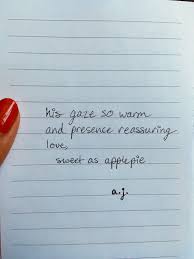 his gaze so warm
and presence reassuring
love,
sweet as applepie
a.j.